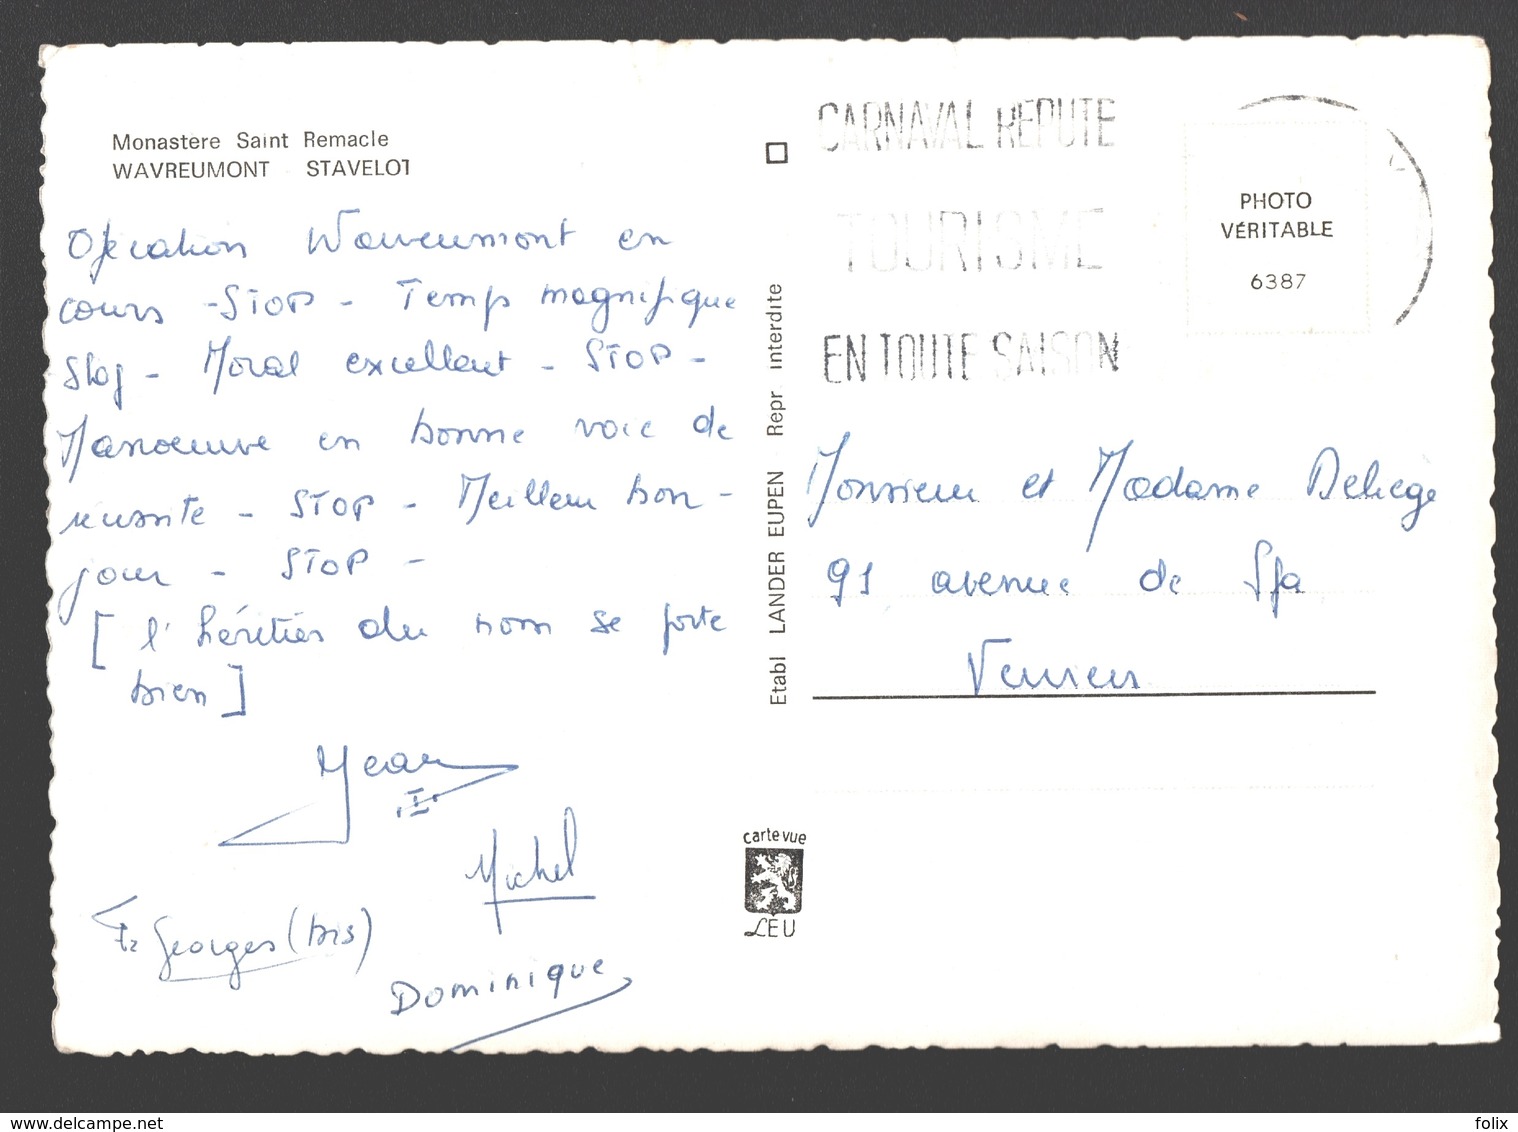 Monastere Saint Remacle
WAVREUMONT STAVELOT
Opération Wavreumont en
cours - STOP - Temps magnifique
Stop - Moral excellent - STOP -
Manoeuvre en bonne voie de
réussite - STOP - Meilleur bon -
jour - STOP -
[ l'héritier du nom se porte
bien ]
Jean
I
Michel
Fr Georges (bis)
Dominique
Etabl LANDER EUPEN - Repr interdite
carte vue
LEU
CARNAVAL REPUTE
TOURISME
EN TOUTE SAISON
PHOTO
VÉRITABLE
6387
Monsieur et Madame Deliège
91 avenue de Spa
Verviers
www.delcampe.net
folix